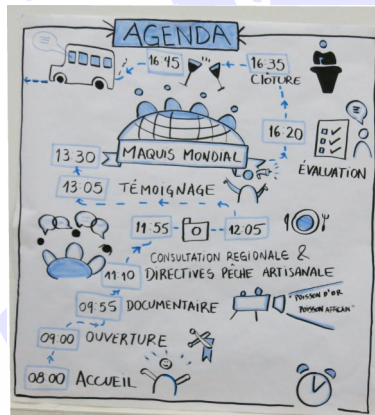 AGENDA
16:45
16:35
CLÔTURE
16:20
ÉVALUATION
MAQUIS MONDIAL
13:30
13:05 TÉMOIGNAGE
11:55
12:05
CONSULTATION REGIONALE &
11:10 DIRECTIVES PÊCHE ARTISANALE
09:55 DOCUMENTAIRE
"POISSON D'OR
POISSON AFRICAIN"
09:00 OUVERTURE
08:00 ACCUEIL